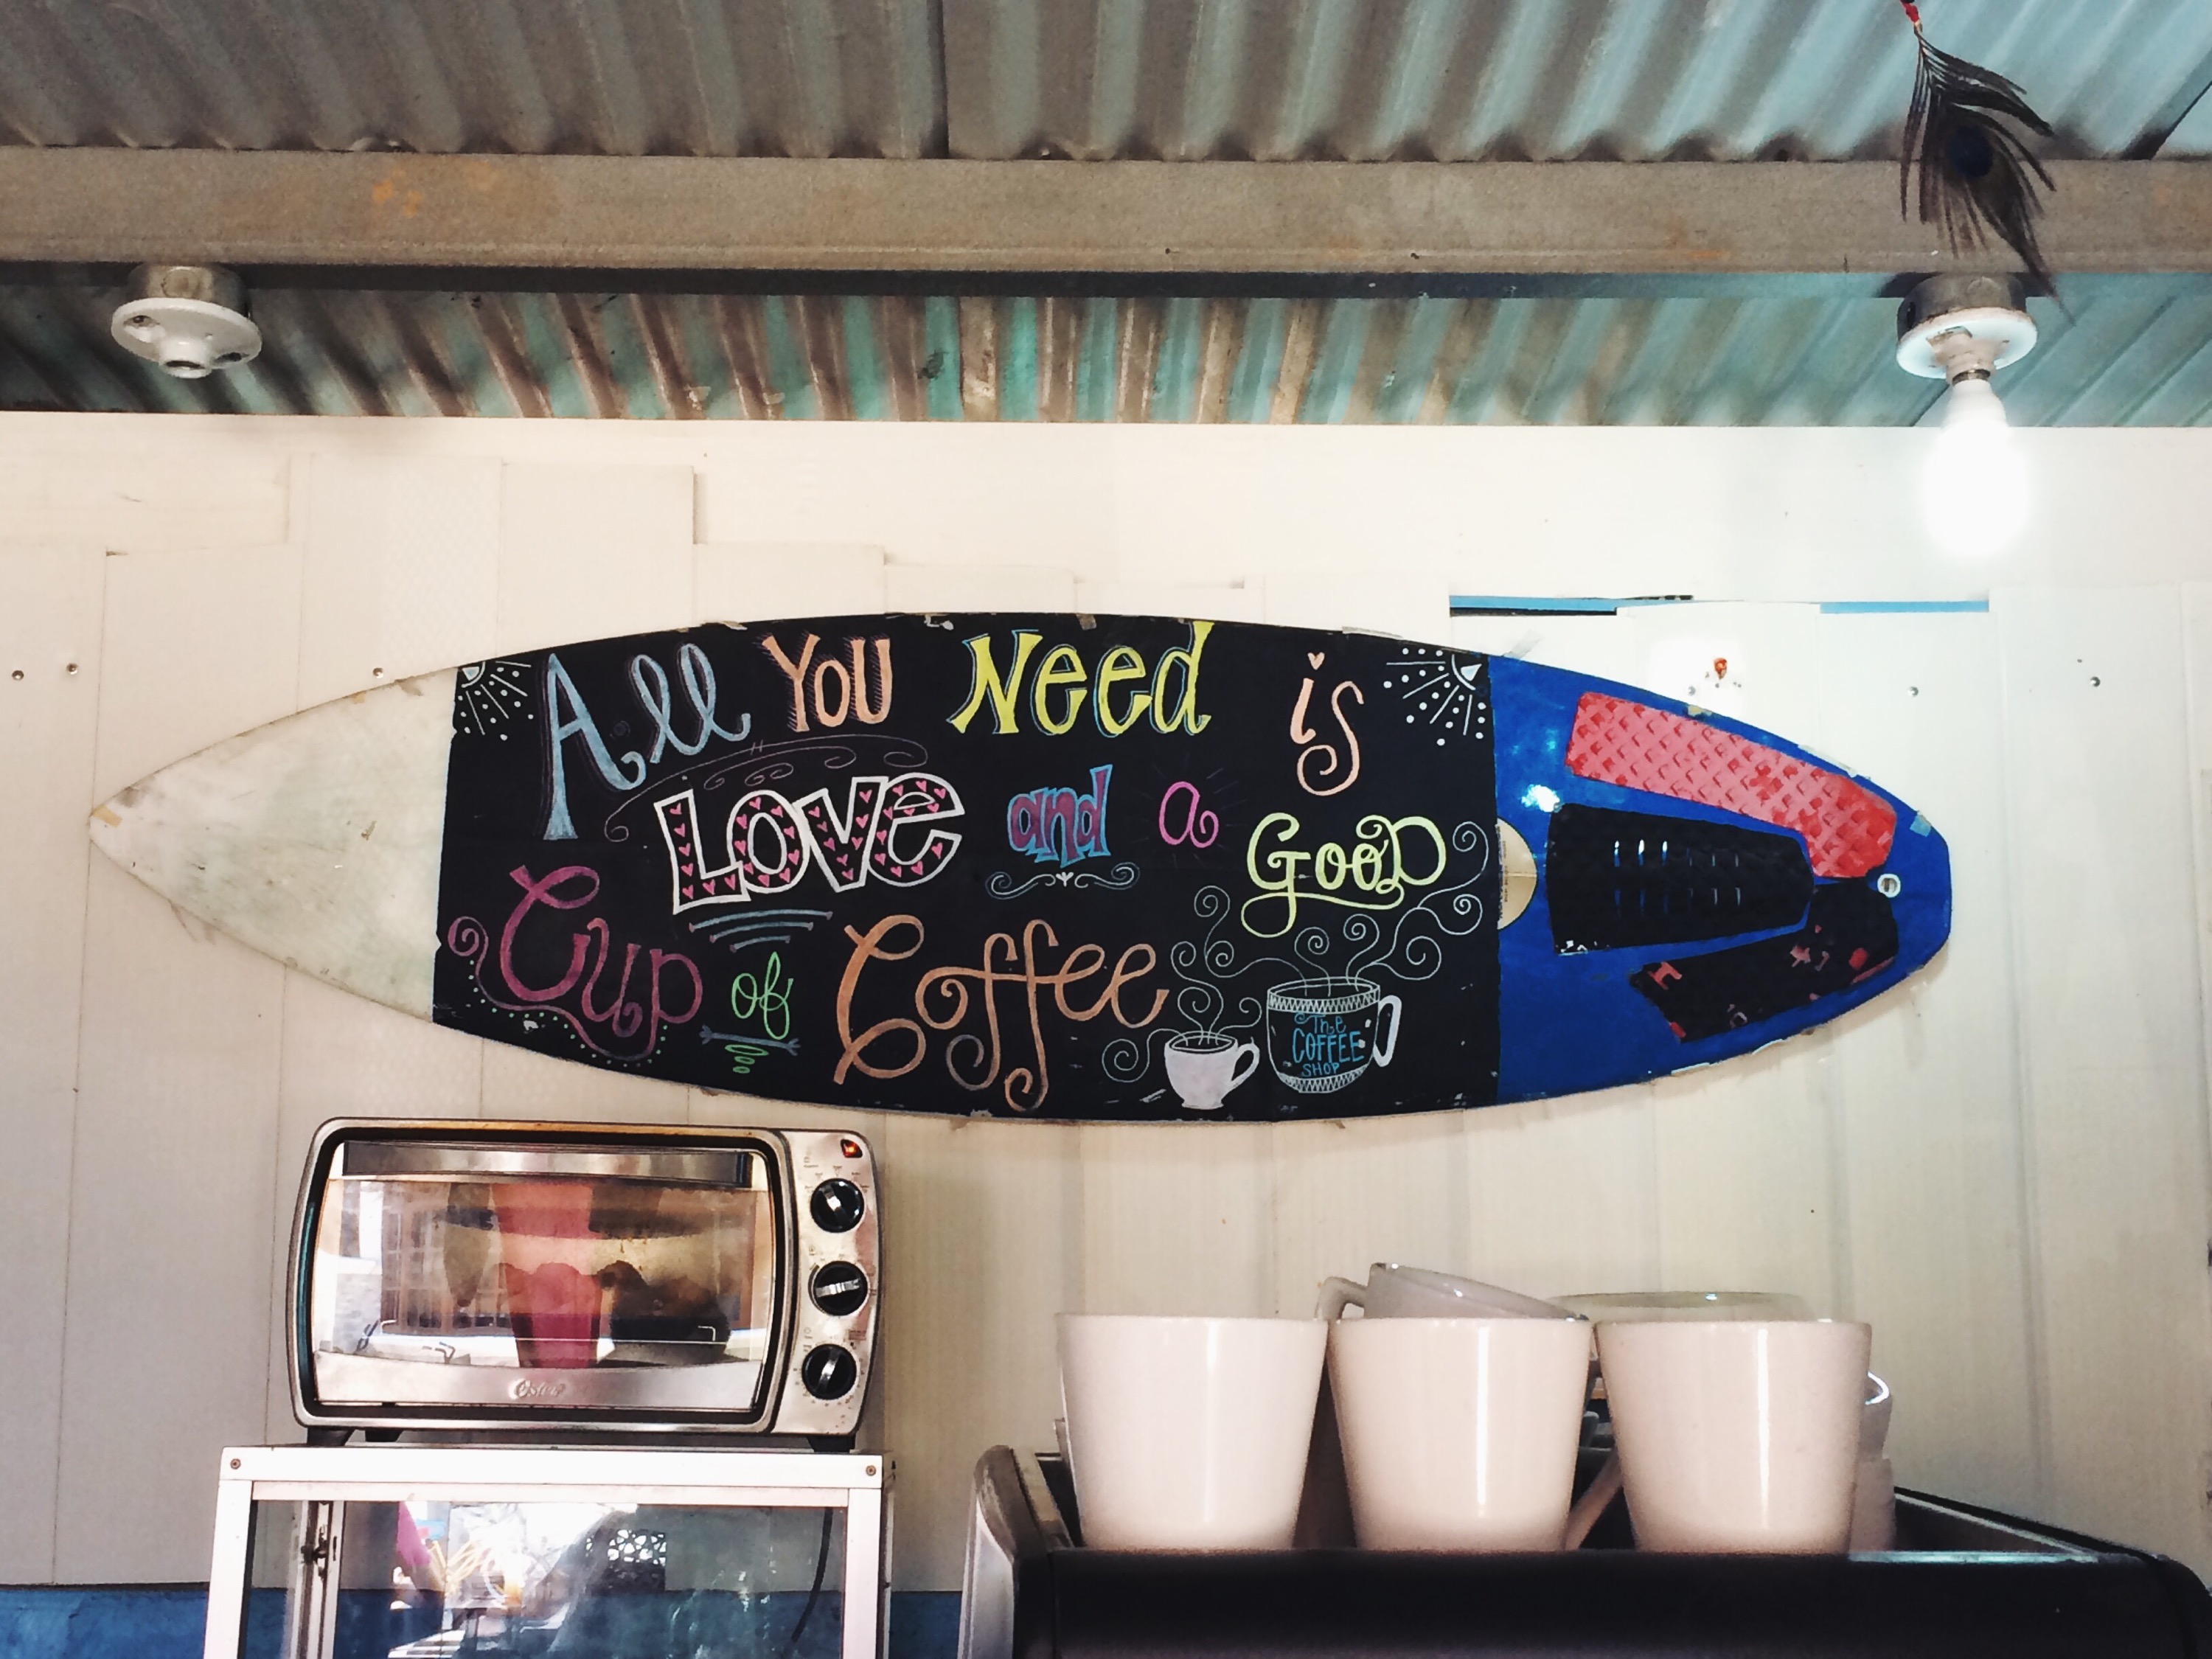 All You Need is
Love and a Good
Cup of Coffee
The
COFFEE
SHOP
Oster